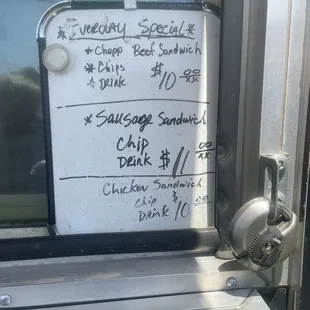 *Everday Special*
*Chopp Beef Sandwich
*Chips
*Drink $10 00/xx
*Sausage Sandwich
Chip
Drink $11 00/xx
Chicken Sandwich
Chip
Drink $10 00/xx